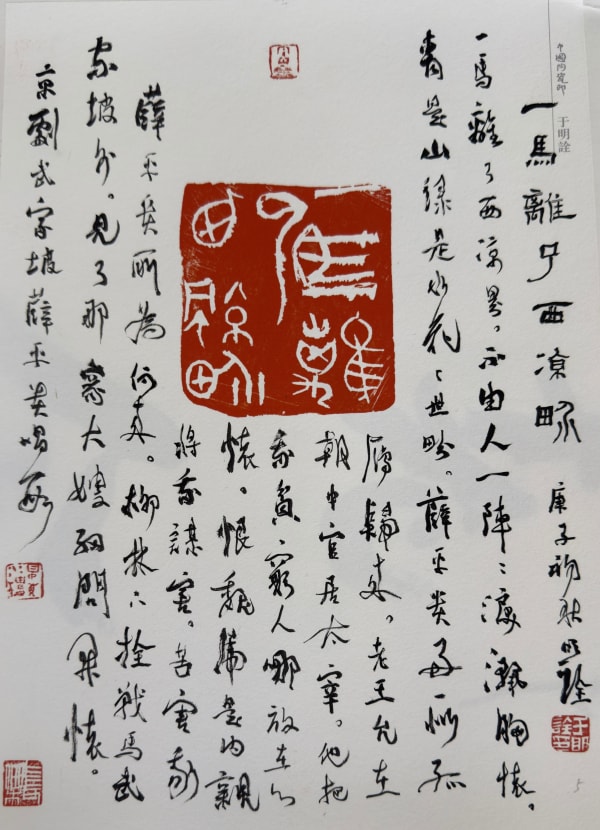 中國陶瓷印
于明詮
一馬離了西凉畍
庚子初秋明詮
一馬離了西凉界。不由人一陣〻淚灑胸懷。
青是山綠是水花〻世畍。薛平貴好一似孤
雁歸來。老王允在
朝中官居太宰。他把
我貧窮人哪放在心
懷。恨魏虎是内親
將我謀害。苦害我
薛平貴所為何來。柳林下拴戰馬武
家坡外。見了那衆大嫂細問開懷。
京劇武家坡薛平貴唱段
5